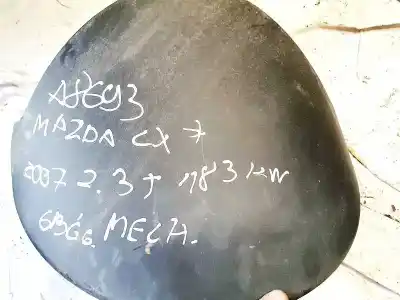 A8693
MAZDA CX 7
2007 2.3T 183 KW
6BĖG. MECH.